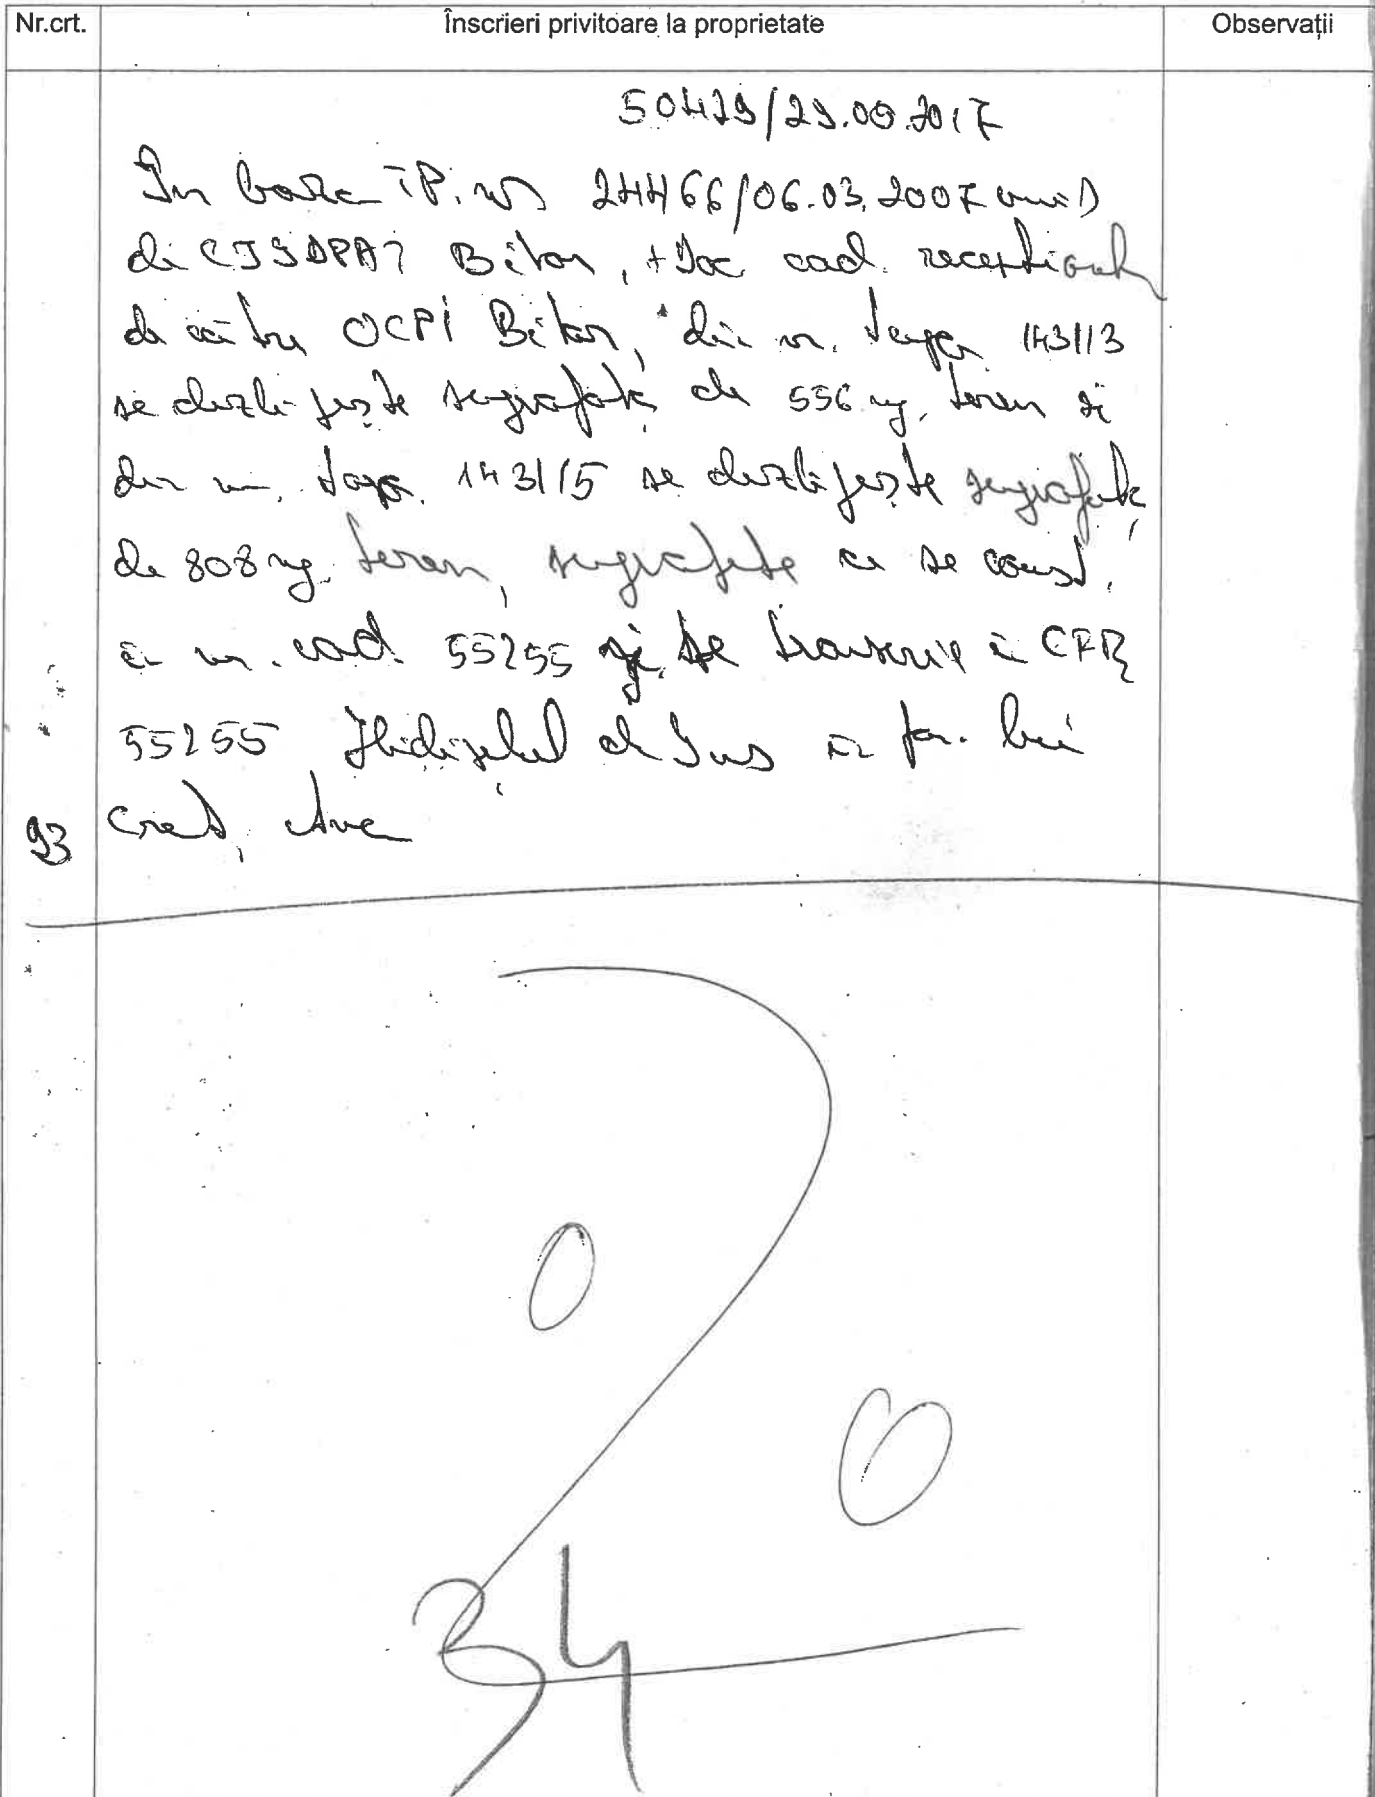 Nr.crt. Înscrieri privitoare la proprietate Observații
50429/29.09.2017
În baza TP. nr 24466/06.03.2007 emis
de CJSDPAT Bihor, + doc cad. recepționată
de către OCPI Bihor, din nr. topo 143113
se dezlipește suprafața de 556 mp. teren și
din nr. topo. 143115 se dezlipește suprafața
de 808 mp. teren, suprafețe ce se const.
în nr. cad. 55255 și se transcrie în CFR
55255 de Sus în fav. lui
93 Creț, Ana
0
0
34